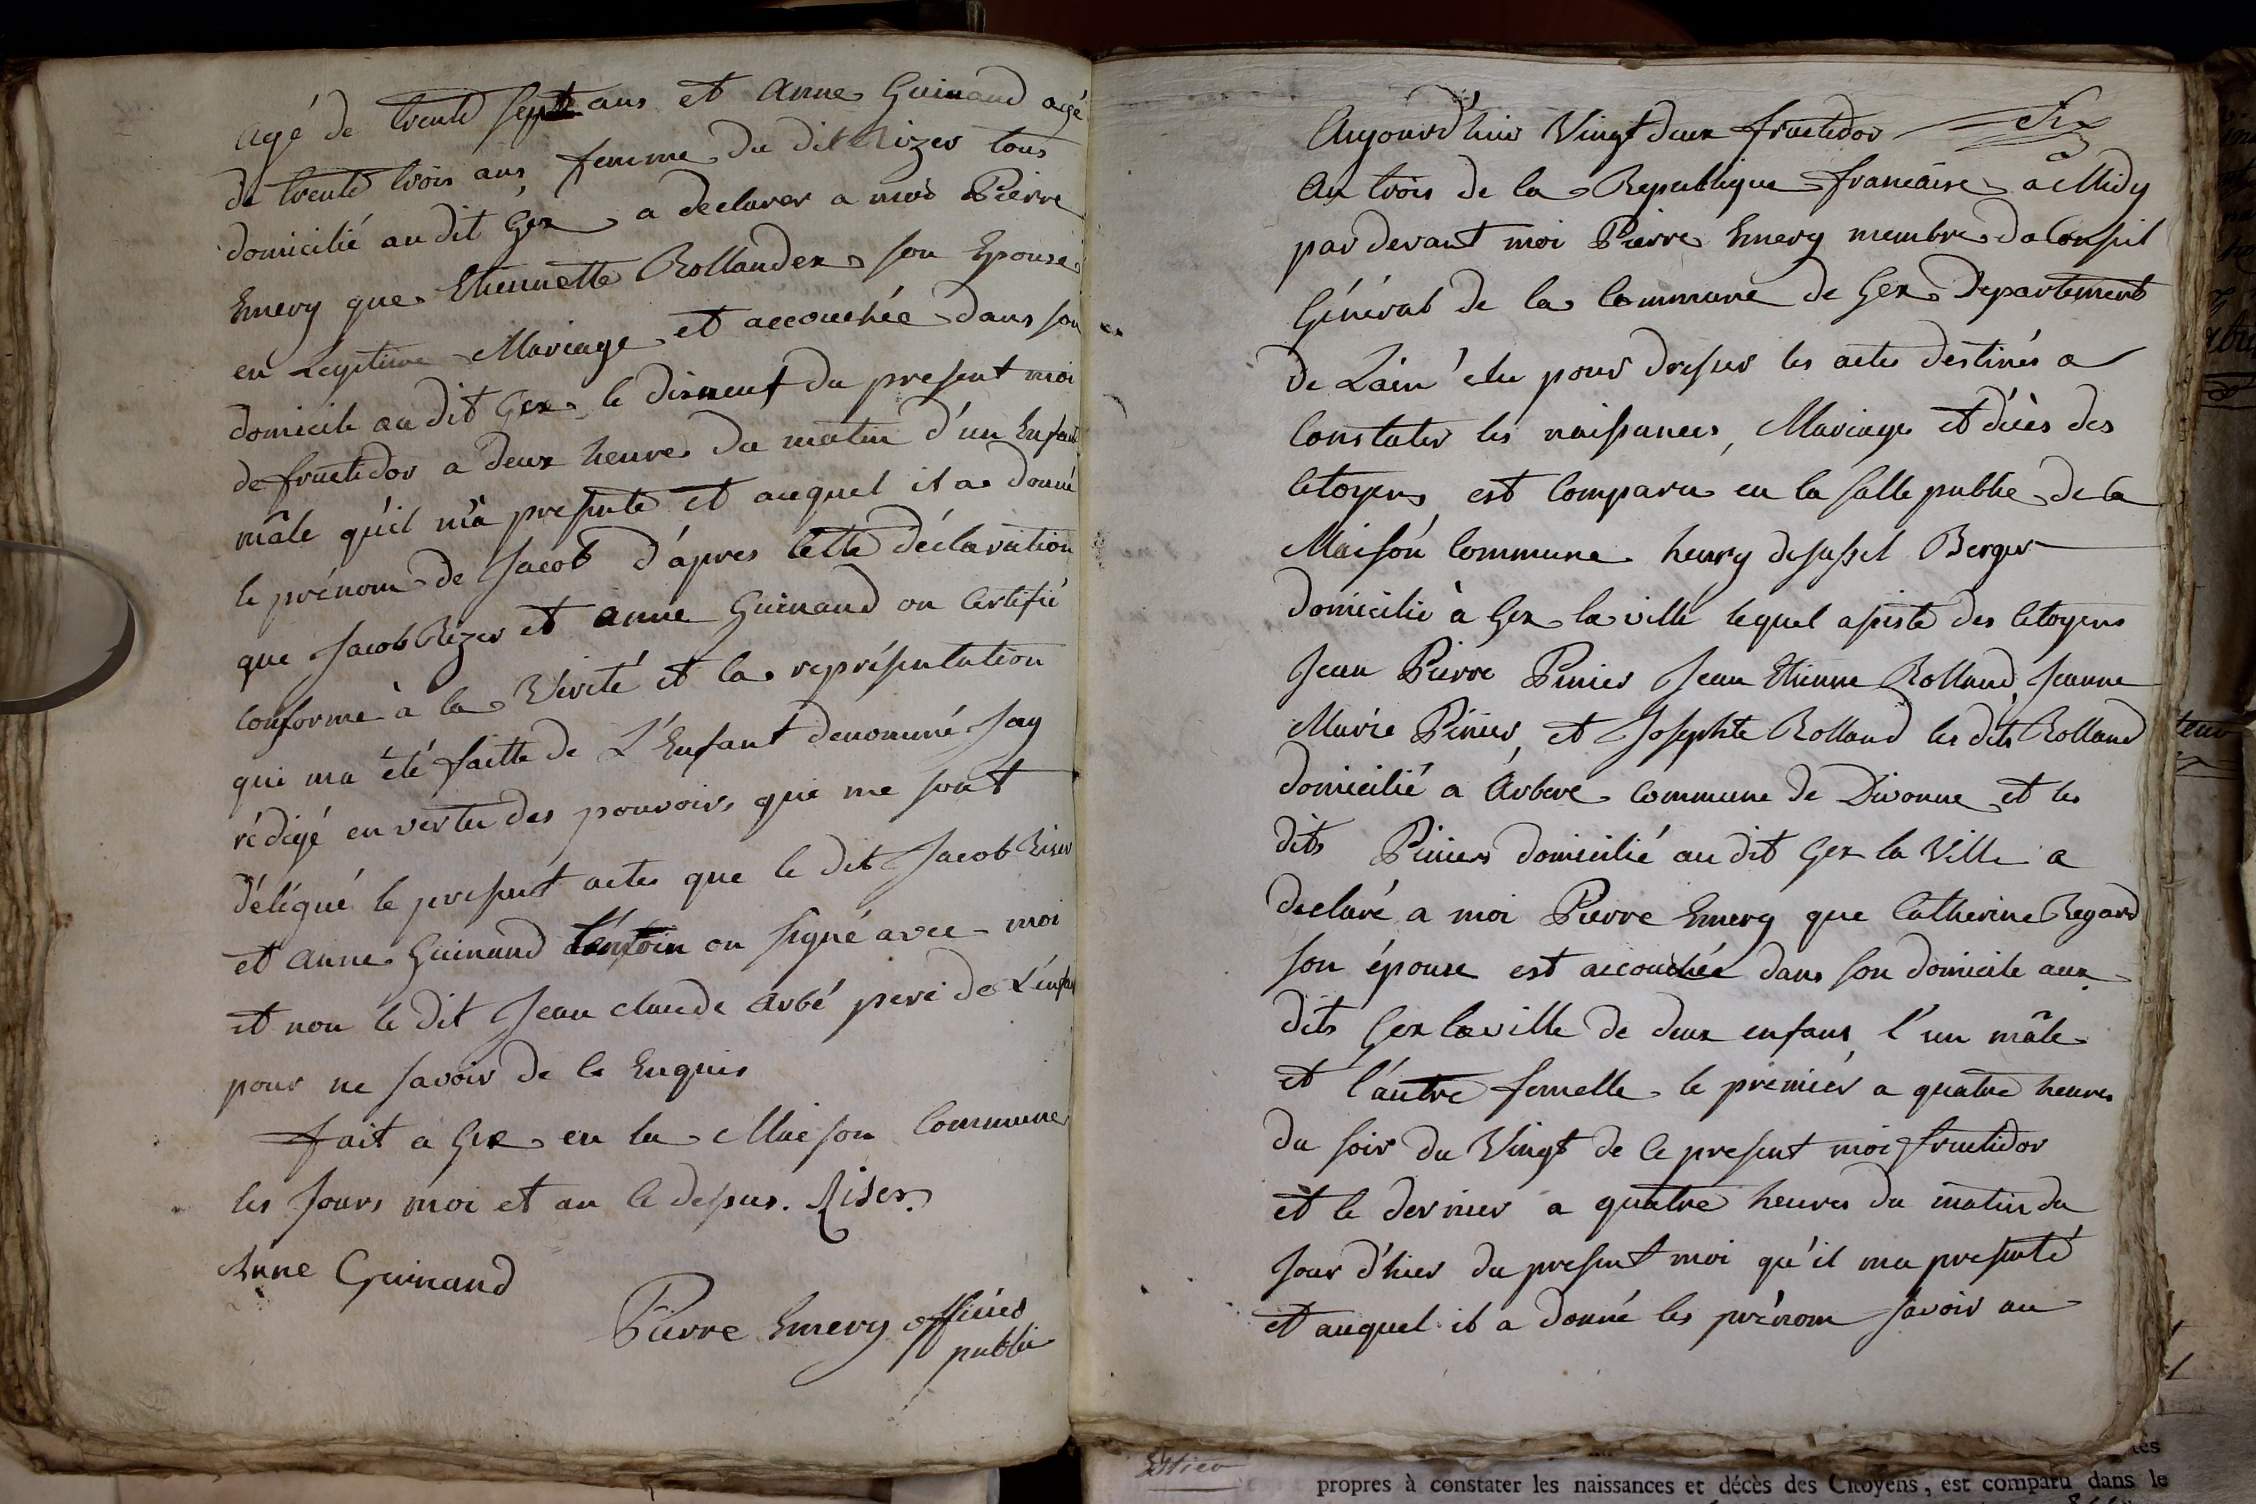 agé de trente sept ans et anne Guinand agé
de trente trois ans, femme du dit Rizer tous
domicilié au dit Gex a declarer a moi Pierre
Emery que Etiennette Rollander son Epouse
en Legitime Mariage et accouchée dans son
domicile au dit Gex le dixneuf du present moi
de fructidor a deux heure du matin d'un Enfant
mâle qu'il m'a presenté et auquel il a donné
le prénom de Jacob d'apres cette déclaration
que Jacob Rizer et anne Guinand on Certifié
Conforme à la Vérité et la représentation
qui ma été faitte de L'Enfant denommé Jay
rédigé en vertu des pouvoirs qui me sont
délégué le present actes que le dit Jacob Riser
et anne Guinand témoin on signé avec moi
et non le dit Jean claude arbé pere de L'enfant
pour ne savoir de ce Enquis
fait a Gex en la Maison Commune
les Jours moi et an ce dessus. Riser
Anne Guinand
Pierre Emery officier
public
Aujourd'huis Vingt deux fructidor
An trois de la Republique francaise a Midy
par devant moi Pierre Emery membre du Conseil
Général de la Commune de Gex Departement
de Lain élu pour dresser les actes destinés a
Constater les naissances, Mariage et décès des
Citoyens est Comparu en la salle publie de la
Maison Commune henry desussel Berger
domicilié à Gex la ville lequel assisté des Citoyens
Jean Pierre Pinier Jean Etienne Rolland, Jeanne
Marie Pinier, et Josephte Rolland les dits Rolland
domicilié a Arbere Commune de Divonne et les
dits Pinier domicilié au dit Gex la Ville a
declaré a moi Pierre Emery que Catherine Regard
son épouse est accouchée dans son domicile aux
dits Gex la ville de deux enfans l'un mâle
et l'autre femelle le premier a quatre heures
du soir du Vingt de ce present moi fructidor
et le dernier a quatre heures du matin du
Jour d'hier du present moi qu'il ma presenté
et auquel il a donné les prénom savoir au
propres à constater les naissances et décès des Citoyens, est comparu dans le